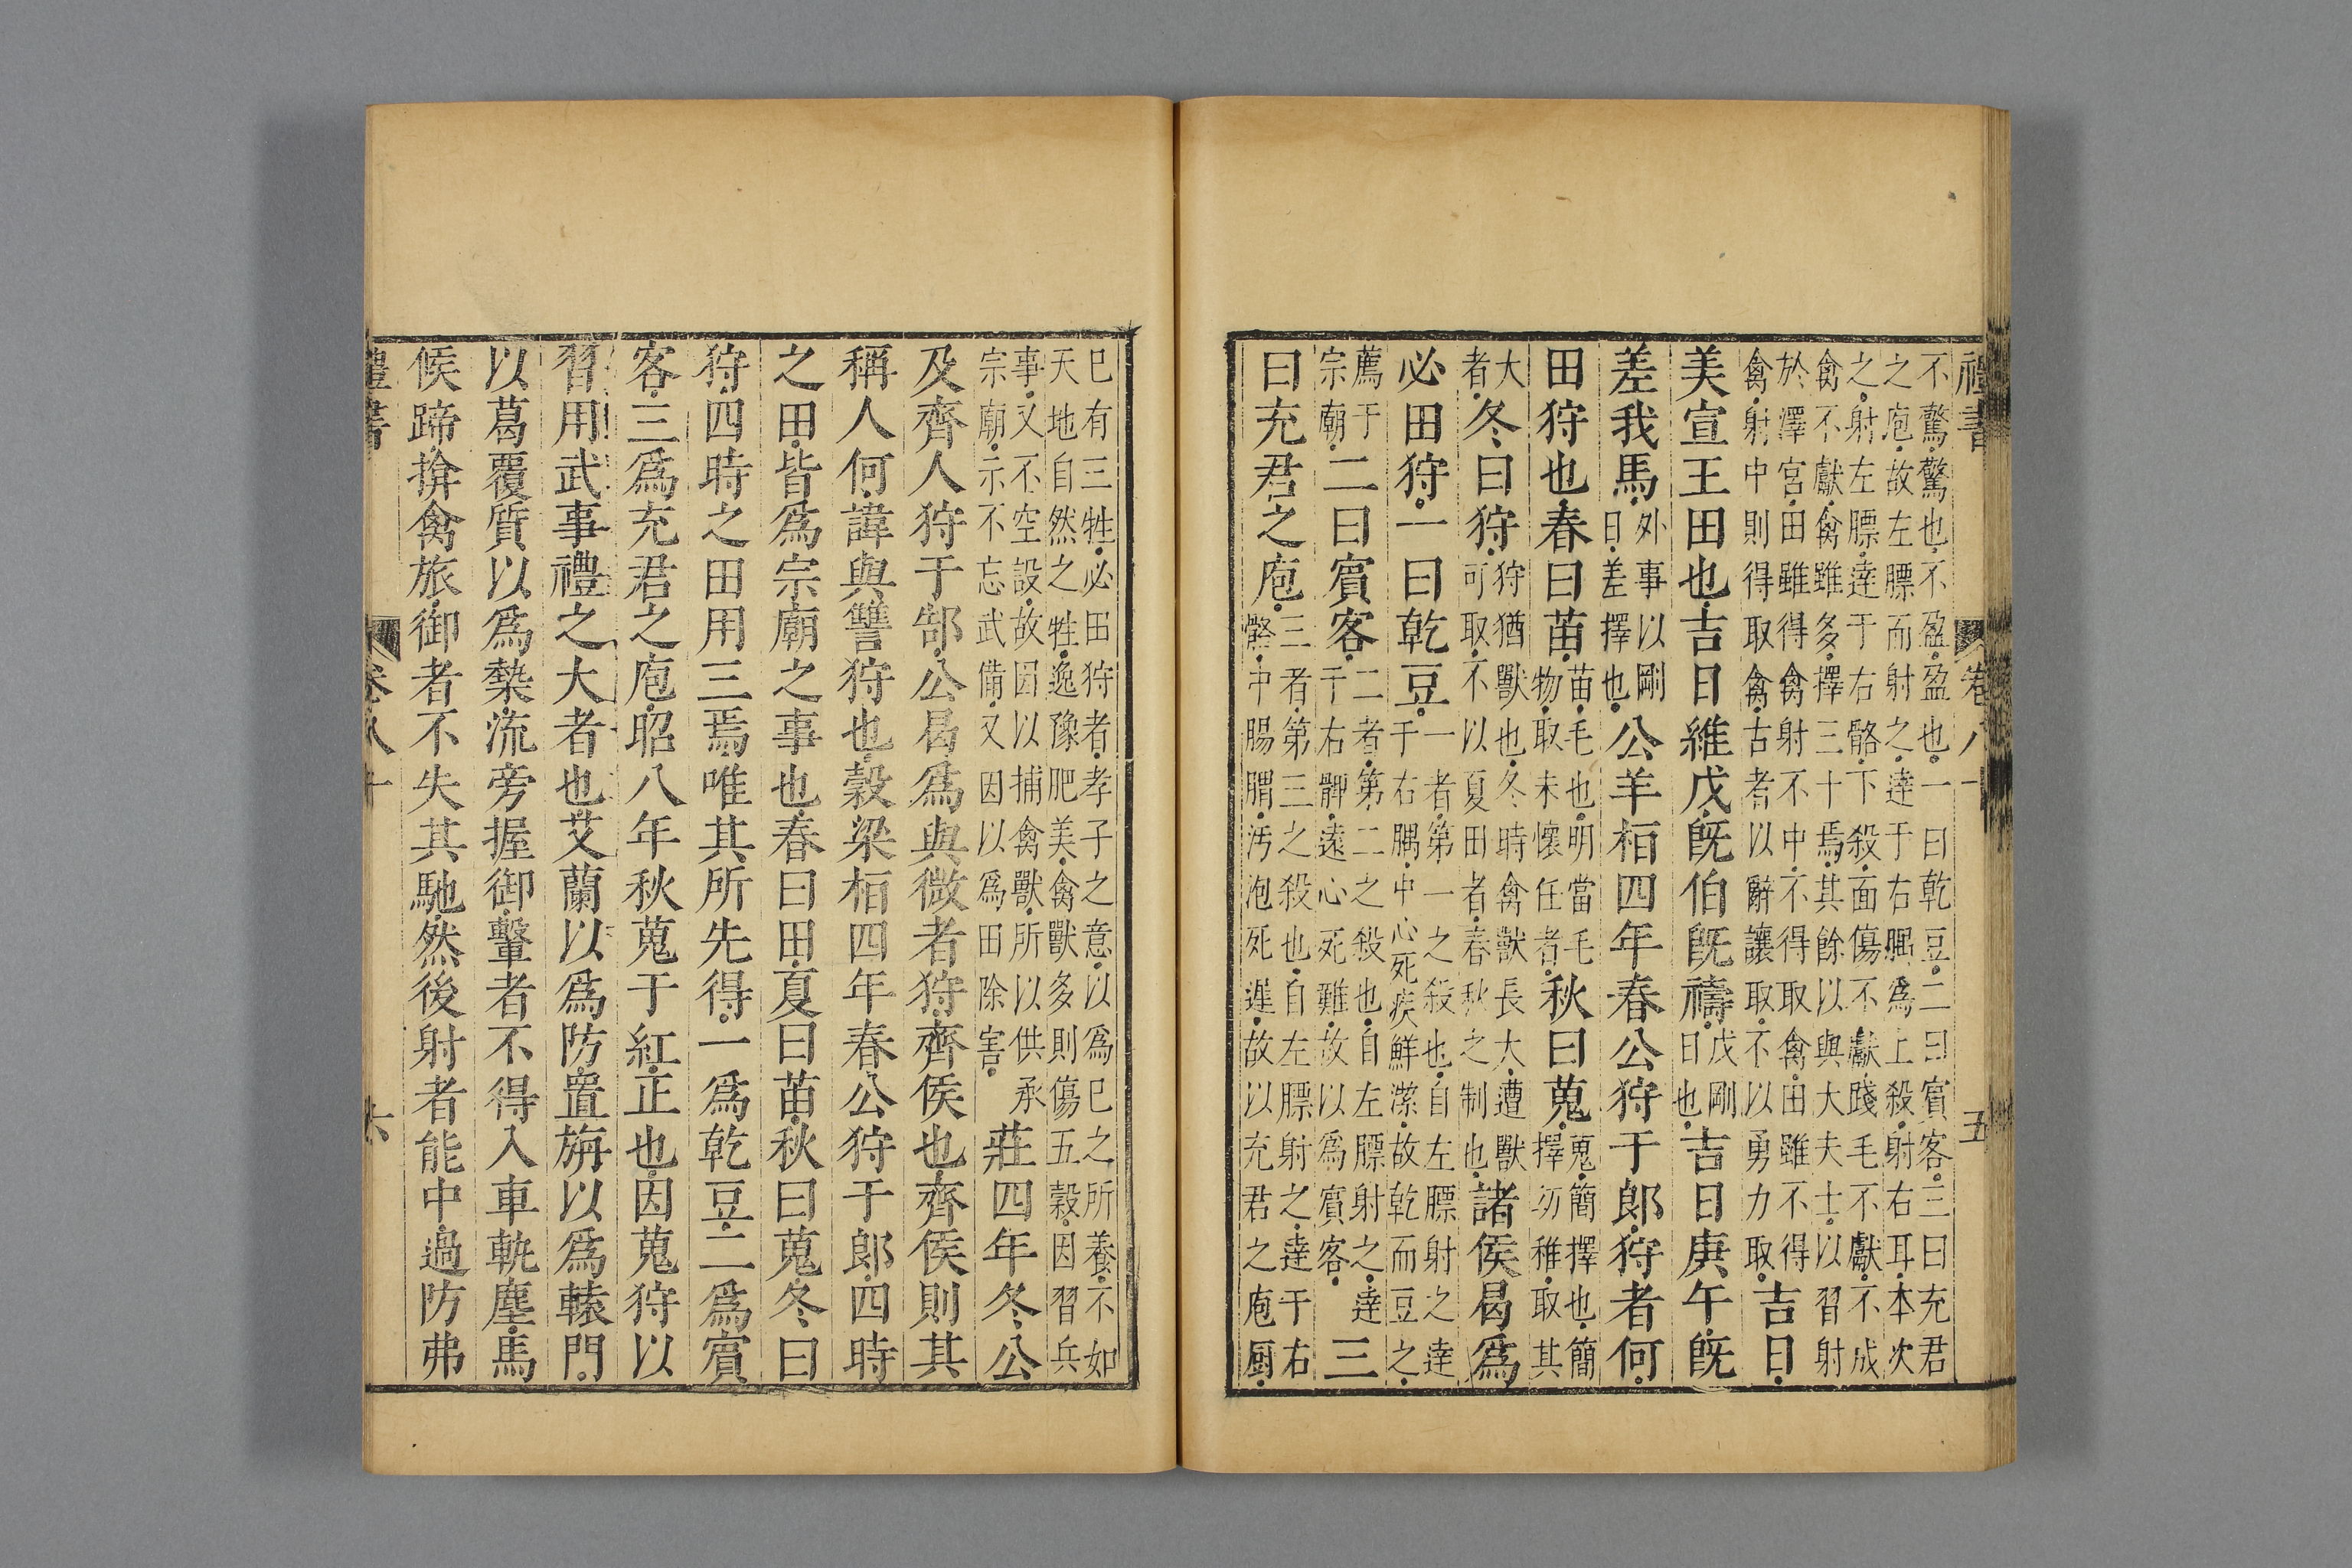 禮書 卷八十 五
不驚驚也不盈盈也一曰乾豆二曰賓客三曰充君
之庖故左膘而射之達于右腢爲上殺射右耳本次
之射左膘達于右䯚下殺面傷不獻踐毛不獻不成
禽不獻禽雖多擇三十焉其餘以與大夫士以習射
於澤宮田雖得禽射不中不得取禽田雖不得
禽射中則得取禽古者以辭讓取不以勇力取吉日
美宣王田也吉日維戊既伯既禱戊剛
日也吉日庚午既
差我馬外事以剛
日差擇也公羊桓四年春公狩于郎狩者何
田狩也春曰苗苗毛也明當毛
物取未懷任者秋曰蒐蒐簡擇也簡
擇㓜稚取其
大
者冬曰狩狩猶獸也冬時禽獸長大遭獸
可取不以夏田者春秋之制也諸侯曷爲
必田狩一曰乾豆一者第一之殺也自左膘射之達
于右腢中心死疾鮮潔故乾而豆之
薦于
宗廟二曰賓客二者第二之殺也自左膘射之達
于右髀遠心死難故以爲賓客三
曰充君之庖三者第三之殺也自左膘射之達于右
䯚中腸胃汚泡死遲故以充君之庖厨
巳有三牲必田狩者孝子之意以爲巳之所養不如
天地自然之牲逸豫肥美禽獸多則傷五穀因習兵
事又不空設故因以捕禽獸所以供承
宗廟示不忘武備又因以爲田除害莊四年冬公
及齊人狩于郜公曷爲與微者狩齊侯也齊侯則其
稱人何諱與讐狩也穀梁桓四年春公狩于郎四時
之田皆爲宗廟之事也春曰田夏曰苗秋曰蒐冬曰
狩四時之田用三焉唯其所先得一爲乾豆二爲賓
客三爲充君之庖昭八年秋蒐于紅正也因蒐狩以
習用武事禮之大者也艾蘭以爲防置旃以爲轅門
以葛覆質以爲槷流旁握御轚者不得入車軌塵馬
候蹄揜禽旅御者不失其馳然後射者能中過防弗
禮書 卷八十 六